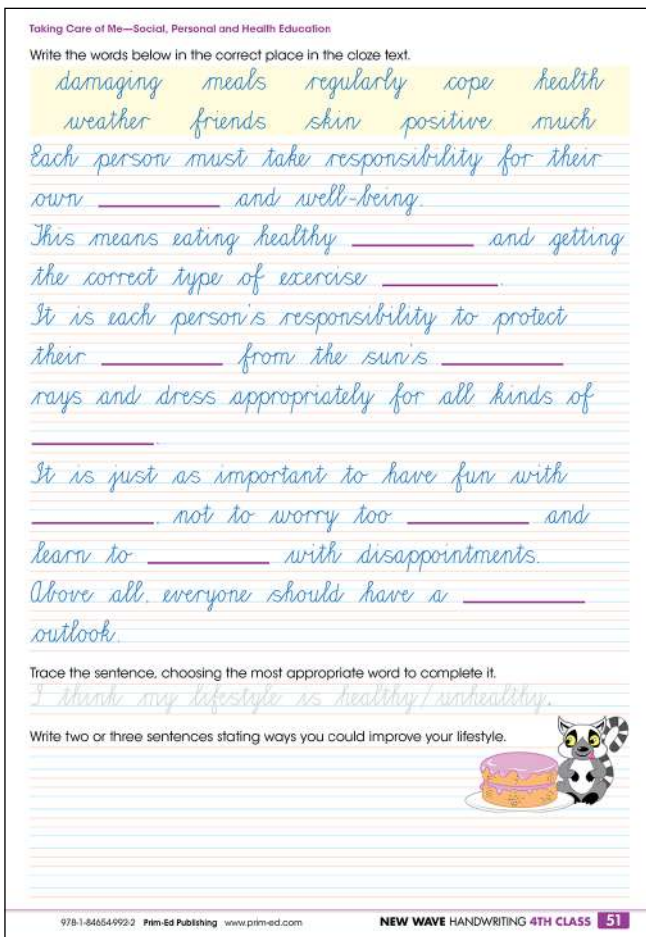 Taking Care of Me—Social, Personal and Health Education
Write the words below in the correct place in the cloze text.
damaging meals regularly cope health
weather friends skin positive much
Each person must take responsibility for their
own __________ and well-being.
This means eating healthy __________ and getting
the correct type of exercise __________.
It is each person's responsibility to protect
their __________ from the sun's __________
rays and dress appropriately for all kinds of
__________.
It is just as important to have fun with
__________, not to worry too __________ and
learn to __________ with disappointments.
Above all, everyone should have a __________
outlook.
Trace the sentence, choosing the most appropriate word to complete it.
I think my lifestyle is healthy/unhealthy.
Write two or three sentences stating ways you could improve your lifestyle.
978-1-84654-992-2 Prim-Ed Publishing www.prim-ed.com NEW WAVE HANDWRITING 4TH CLASS 51